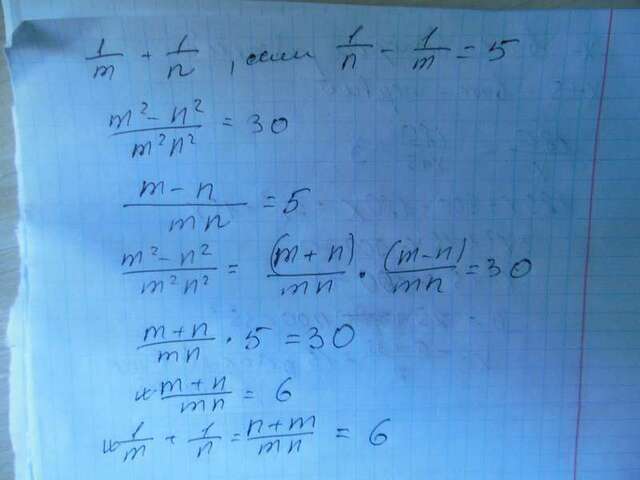 1/m + 1/n , если 1/n - 1/m = 5
m² - n² / m²n² = 30
m - n / mn = 5
m² - n² / m²n² = (m + n) / mn · (m - n) / mn = 30
m + n / mn · 5 = 30
m + n / mn = 6
1/m + 1/n = n + m / mn = 6